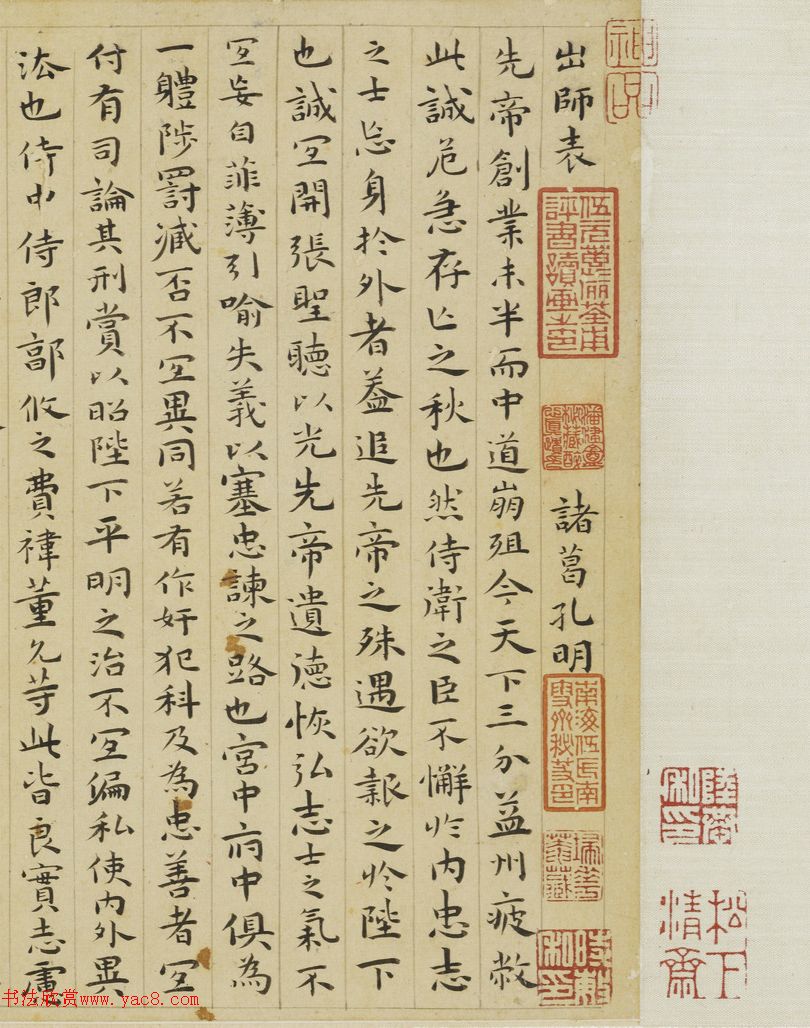 出師表 諸葛孔明
先帝創業未半而中道崩殂今天下三分益州疲敝
此誠危急存亡之秋也然侍衛之臣不懈於内忠志
之士忘身於外者蓋追先帝之殊遇欲報之於陛下
也誠宜開張聖聽以光先帝遺德恢弘志士之氣不
宜妄自菲薄引喻失義以塞忠諫之路也宮中府中俱為
一體陟罰臧否不宜異同若有作奸犯科及為忠善者宜
付有司論其刑賞以昭陛下平明之治不宜偏私使内外異
法也侍中侍郎郭攸之費禕董允等此皆良實志慮
伍元蕙儷荃甫評書讀畫之印
南海伍氏南雪齋秘笈印
松下清齋
书法欣赏www.yac8.com